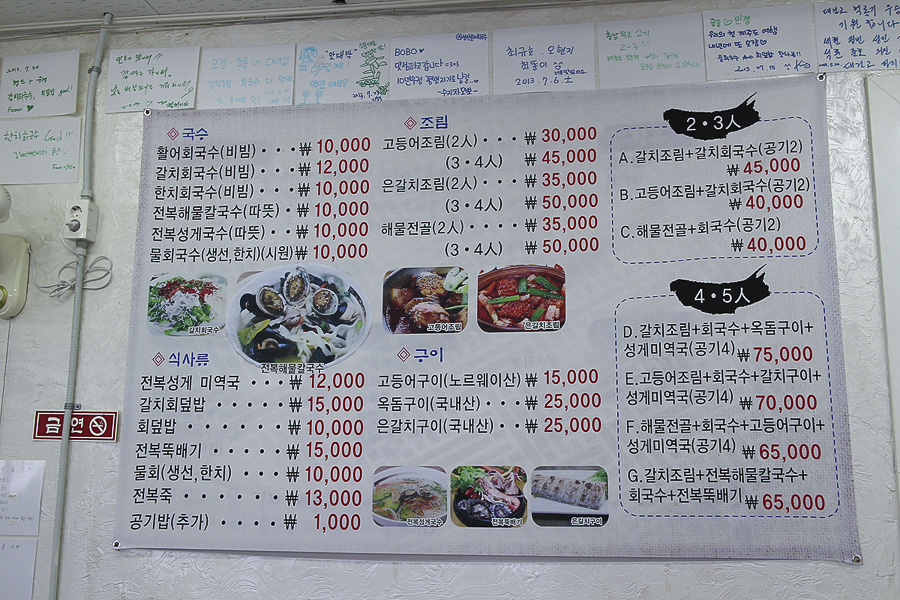 BOBO♥
최규호. 오현지
2013. 7. 6. 土
국수
활어회국수(비빔) · · · ₩ 10,000
갈치회국수(비빔) · · · ₩ 12,000
한치회국수(비빔) · · · ₩ 10,000
전복해물칼국수(따뜻) · · ₩ 10,000
전복성게국수(따뜻) · · · ₩ 10,000
물회국수(생선,한치)(시원) ₩ 10,000
갈치회국수
전복해물칼국수
식사류
전복성게 미역국 · · · ₩ 12,000
갈치회덮밥 · · · · · ₩ 15,000
회덮밥 · · · · · · · ₩ 10,000
전복뚝배기 · · · · · ₩ 15,000
물회(생선,한치) · · · · ₩ 10,000
전복죽 · · · · · · · ₩ 13,000
공기밥(추가) · · · · · ₩ 1,000
조림
고등어조림(2人) · · · ₩ 30,000
(3·4人) ₩ 45,000
은갈치조림(2人) · · · ₩ 35,000
(3·4人) ₩ 50,000
해물전골(2人) · · · · ₩ 35,000
(3·4人) ₩ 50,000
고등어조림
은갈치조림
구이
고등어구이(노르웨이산) · ₩ 15,000
옥돔구이(국내산) · · · ₩ 25,000
은갈치구이(국내산) · · · ₩ 25,000
전복성게국수
전복뚝배기
은갈치구이
2·3人
A.갈치조림+갈치회국수(공기2)
₩ 45,000
B.고등어조림+갈치회국수(공기2)
₩ 40,000
C.해물전골+회국수(공기2)
₩ 40,000
4·5人
D.갈치조림+회국수+옥돔구이+
성게미역국(공기4) ₩ 75,000
E.고등어조림+회국수+갈치구이+
성게미역국(공기4) ₩ 70,000
F.해물전골+회국수+고등어구이+
성게미역국(공기4) ₩ 65,000
G.갈치조림+전복해물칼국수+
회국수+전복뚝배기 ₩ 65,000
금연